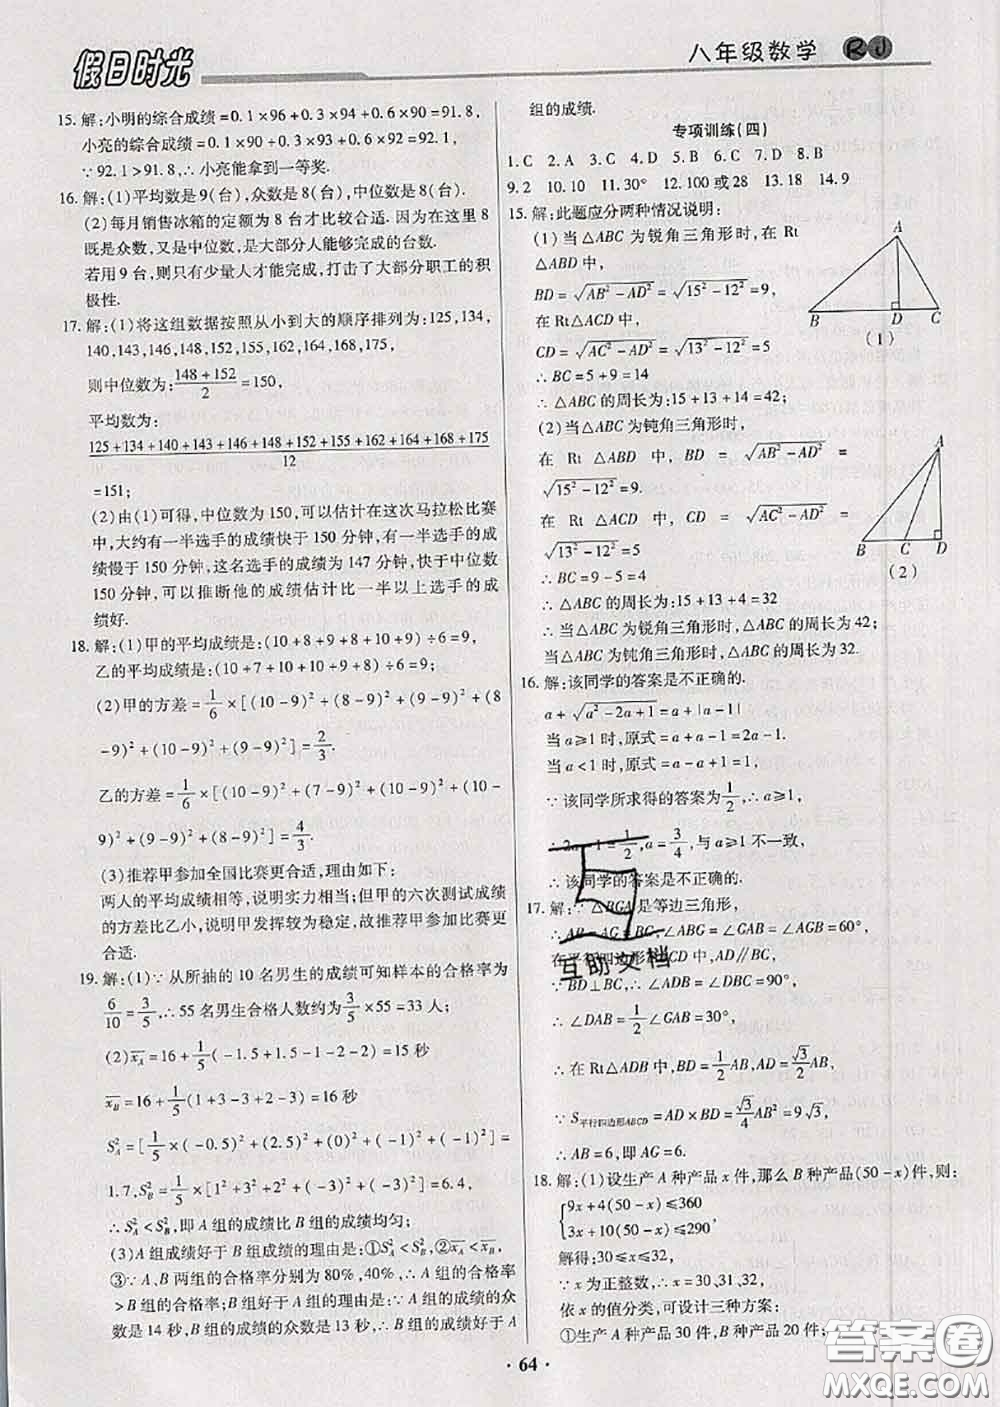 假日时光
八年级数学 RJ
15.解:小明的综合成绩=0.1×96+0.3×94+0.6×90=91.8,
小亮的综合成绩=0.1×90+0.3×93+0.6×92=92.1.
∵92.1>91.8,∴小亮能拿到一等奖.
16.解:(1)平均数是9(台),众数是8(台),中位数是8(台).
(2)每月销售冰箱的定额为8台才比较合适.因为在这里8
既是众数,又是中位数,是大部分人能够完成的台数.
若用9台,则只有少量人才能完成,打击了大部分职工的积
极性.
17.解:(1)将这组数据按照从小到大的顺序排列为:125,134,
140,143,146,148,152,155,162,164,168,175,
则中位数为:(148+152)/2=150,
平均数为:
(125+134+140+143+146+148+152+155+162+164+168+175)/12
=151;
(2)由(1)可得,中位数为150,可以估计在这次马拉松比赛
中,大约有一半选手的成绩快于150分钟,有一半选手的成
绩慢于150分钟,这名选手的成绩为147分钟,快于中位数
150分钟,可以推断他的成绩估计比一半以上选手的成
绩好.
18.解:(1)甲的平均成绩是:(10+8+9+8+10+9)÷6=9,
乙的平均成绩是:(10+7+10+10+9+8)÷6=9;
(2)甲的方差=1/6×[(10-9)²+(8-9)²+(9-9)²+(8-
9)²+(10-9)²+(9-9)²]=2/3.
乙的方差=1/6×[(10-9)²+(7-9)²+(10-9)²+(10-
9)²+(9-9)²+(8-9)²]=4/3.
(3)推荐甲参加全国比赛更合适,理由如下:
两人的平均成绩相等,说明实力相当;但甲的六次测试成绩
的方差比乙小,说明甲发挥较为稳定,故推荐甲参加比赛更
合适.
19.解:(1)∵从所抽的10名男生的成绩可知样本的合格率为
6/10=3/5,∴55名男生合格人数约为3/5×55=33人;
(2)x̄_A=16+1/5(-1.5+1.5-1-2-2)=15秒
x̄_B=16+1/5(1+3-3+2-3)=16秒
S²_A=[1/5×(-0.5)²+(2.5)²+(0)²+(-1)²+(-1)²]=
1.7,S²_B=1/5×[1²+3²+2²+(-3)²+(-3)²]=6.4,
∴S²_A<S²_B,即A组的成绩比B组的成绩均匀;
(3)A组成绩好于B组成绩的理由是:①S²_A<S²_B,②x̄_A>x̄_B.
③∵A、B两组的合格率分别为80%,40%,∴A组的合格率
>B组的合格率;B组好于A组的理由是:∵A组的成绩的众
数是14秒,B组的成绩的众数是13秒,∴B组的成绩好于A
组的成绩.
专项训练(四)
1.C 2.A 3.A 4.D 5.B 6.C 7.D 8.B
9.2 10.10 11.30° 12.100或28 13.18 14.9
15.解:此题应分两种情况说明:
(1)当△ABC为锐角三角形时,在Rt
△ABD中,
BD=√(AB²-AD²)=√(15²-12²)=9,
在Rt△ACD中,
CD=√(AC²-AD²)=√(13²-12²)=5
∴BC=5+9=14
∴△ABC的周长为:15+13+14=42;
(2)当△ABC为钝角三角形时,
在Rt△ABD中,BD=√(AB²-AD²)=
√(15²-12²)=9.
在Rt△ACD中,CD=√(AC²-AD²)=
√(13²-12²)=5
∴BC=9-5=4
∴△ABC的周长为:15+13+4=32
∴当△ABC为锐角三角形时,△ABC的周长为42;
当△ABC为钝角三角形时,△ABC的周长为32.
A
B D C
(1)
A
B C D
(2)
16.解:该同学的答案是不正确的.
a+√(a²-2a+1)=a+|a-1|
当a≥1时,原式=a+a-1=2a-1.
当a<1时,原式=a-a+1=1,
∵该同学所求得的答案为1/2,∴a≥1,
∴2a-1=1/2,a=3/4,与a≥1不一致,
∴该同学的答案是不正确的.
17.解:∵△BGA是等边三角形,
∴AB=AG=BG,∠ABG=∠GAB=∠AGB=60°,
在平行四边形ABCD中,AD∥BC,
∵BD⊥BC,∴∠ADB=∠DBC=90°,
∴∠DAB=1/2∠GAB=30°,
∴在Rt△ADB中,BD=1/2AB,AD=√3/2AB,
∵S平行四边形ABCD=AD×BD=√3/4AB²=9√3,
∴AB=6,即AG=6.
18.解:(1)设生产A种产品x件,那么B种产品(50-x)件,则:
{9x+4(50-x)≤360
3x+10(50-x)≤290,
解得:30≤x≤32,
∵x为正整数,∴x=30、31、32,
依x的值分类,可设计三种方案:
①生产A种产品30件,B种产品20件;
互助文档
答案圈
MXQE.COM
·64·